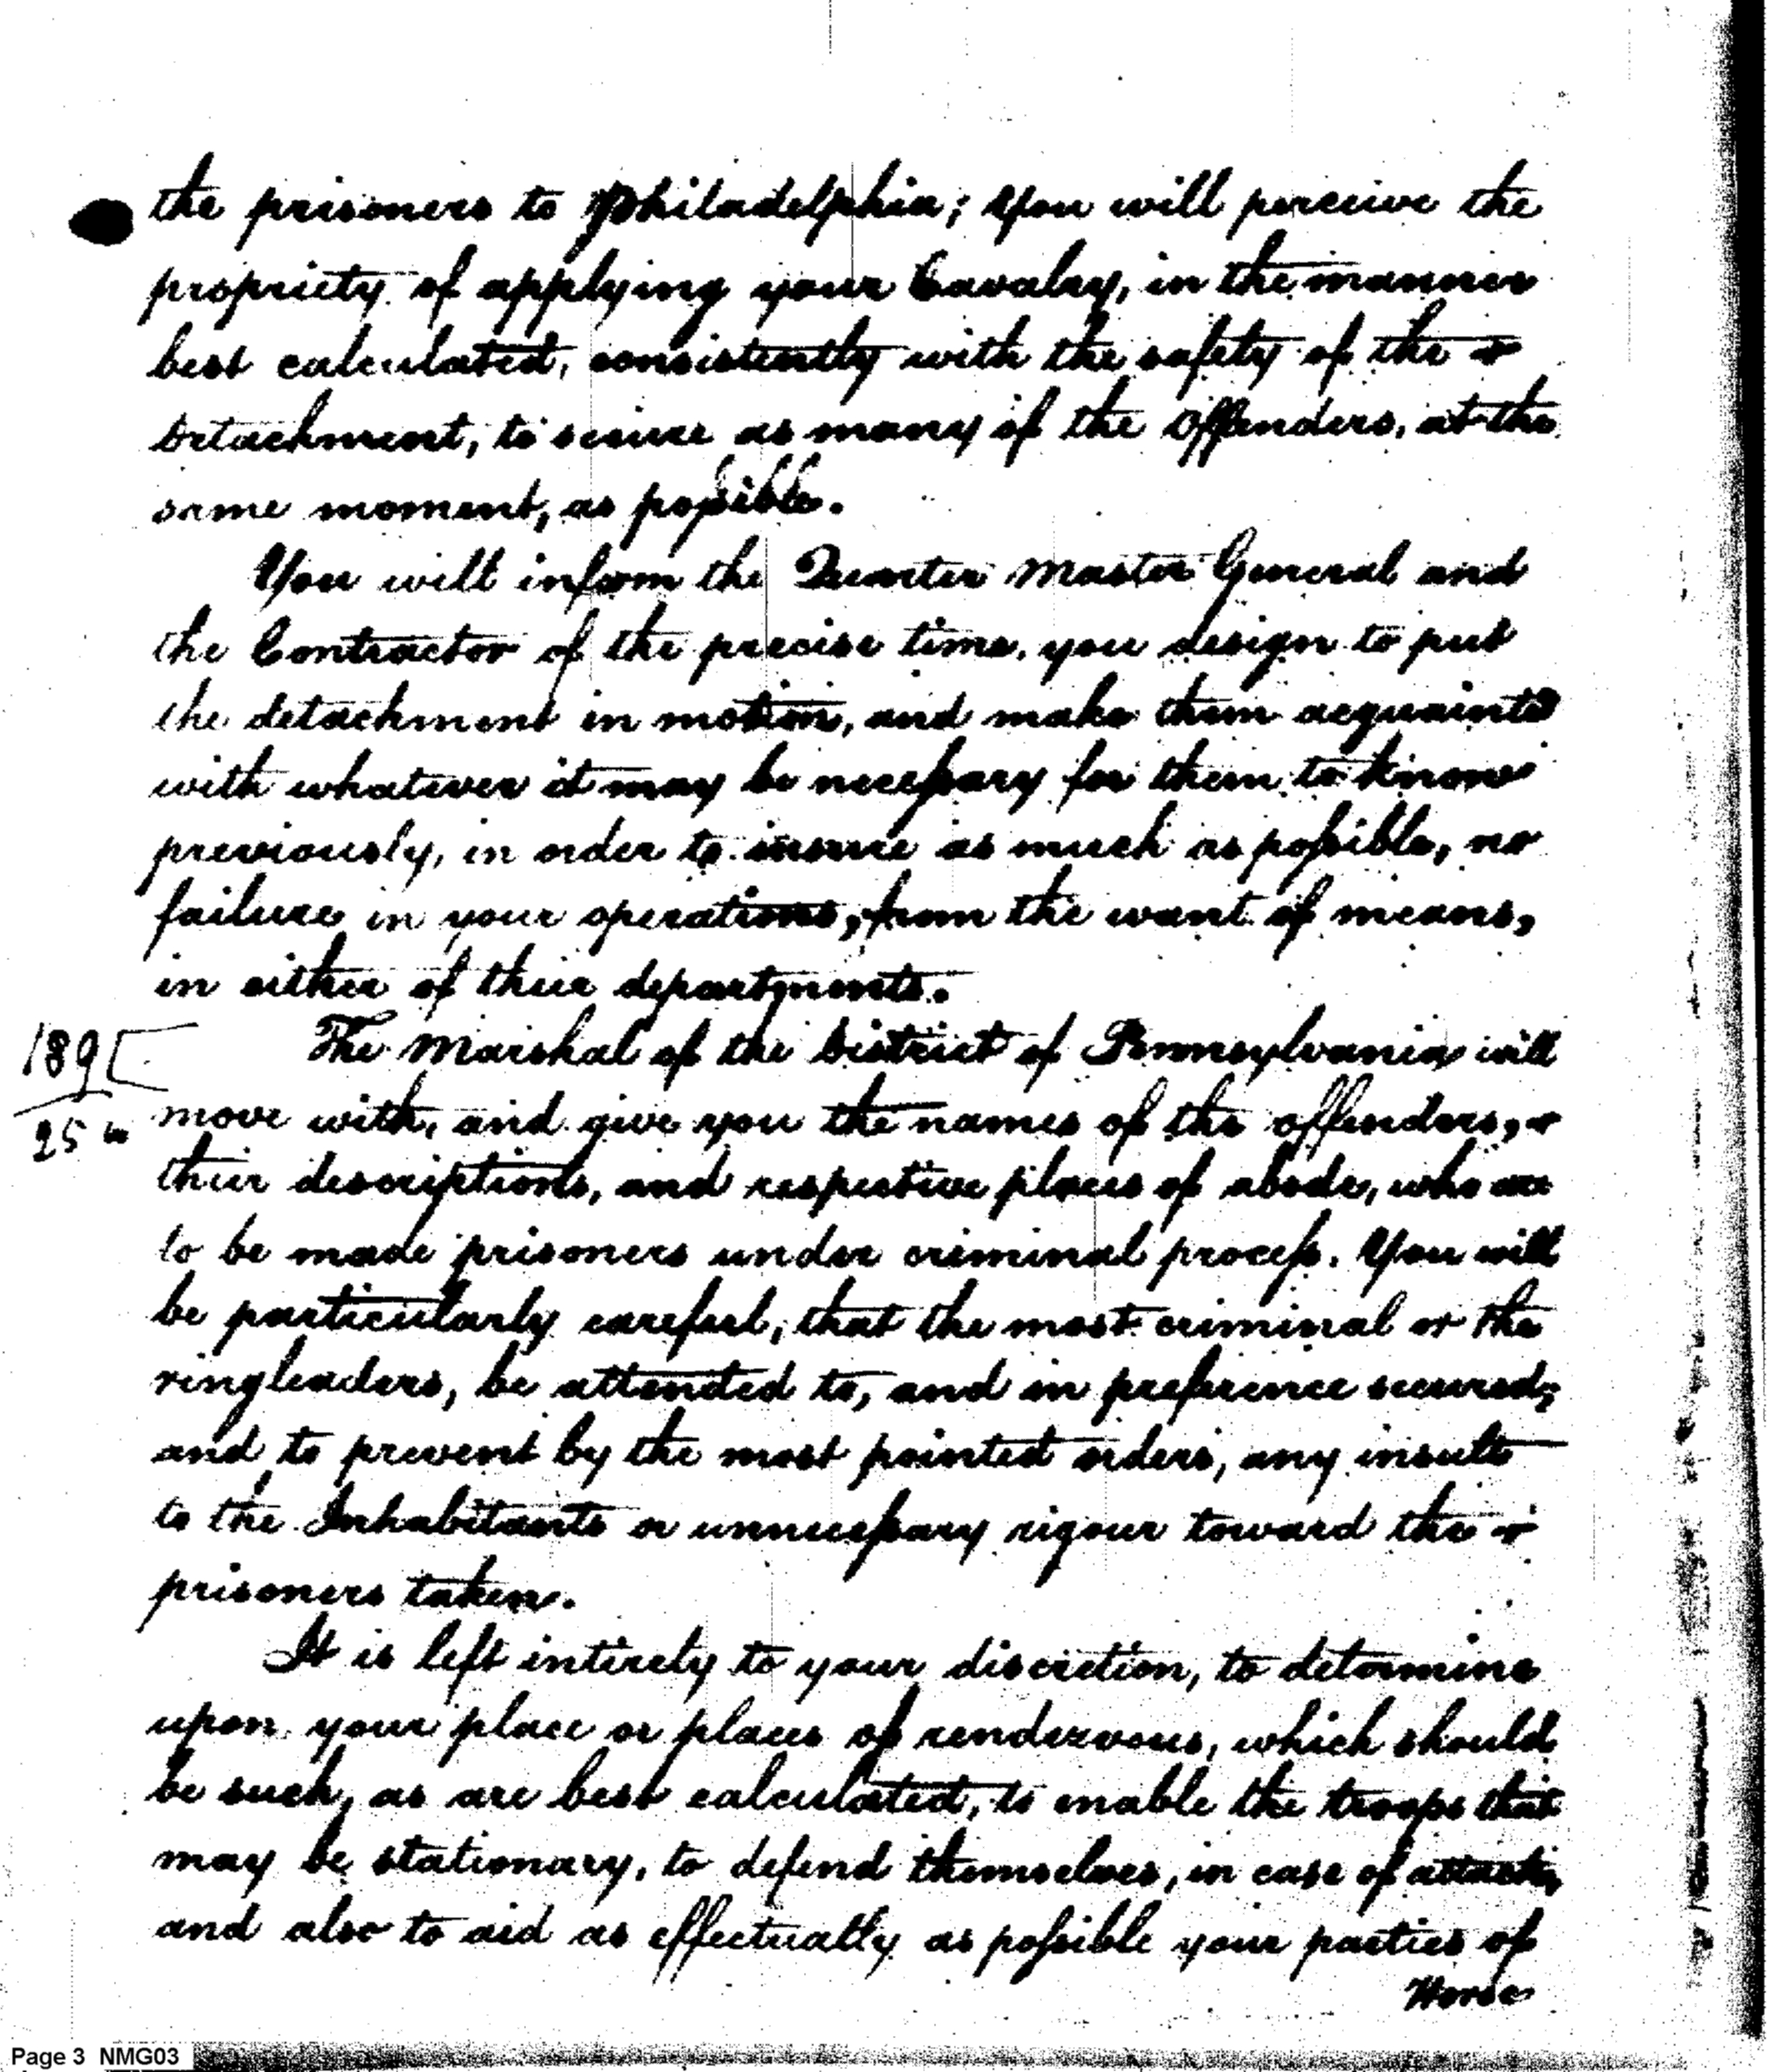 the prisoners to Philadelphia; You will perceive the
propriety of applying your Cavalry, in the manner
best calculated, consistently with the safety of the
detachment, to secure as many of the Offenders, at the
same moment, as possible.
You will inform the Quarter Master General and
the Contractor of the precise time, you design to put
the detachment in motion, and make them acquainted
with whatever it may be necessary for them to know
previously, in order to insure as much as possible, no
failure in your operations, from the want of means,
in either of their departments.
189 [ The Marshal of the District of Pennsylvania will
25 move with, and give you the names of the offenders,
their descriptions, and respective places of abode, who are
to be made prisoners under criminal process. You will
be particularly careful, that the most criminal or the
ringleaders, be attended to, and in preference secured;
and to prevent by the most pointed orders, any insult
to the Inhabitants or unnecessary rigour toward the
prisoners taken.
It is left intirely to your discretion, to determine
upon your place or places of rendezvous, which should
be such, as are best calculated, to enable the troops that
may be stationary, to defend themselves, in case of attack,
and also to aid as effectually as possible your parties of
Horse
Page 3 NMG03